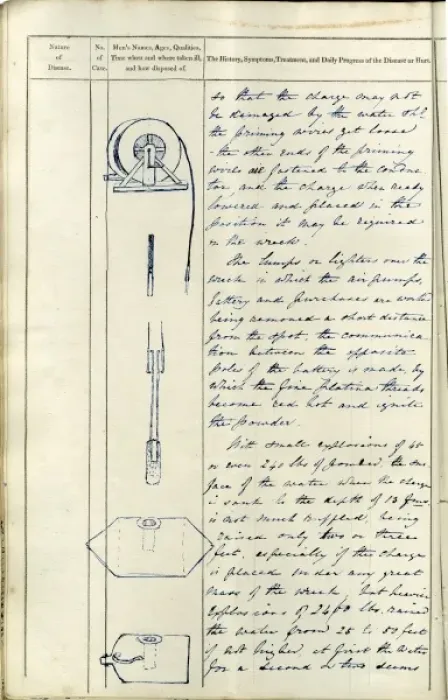 Nature
of
Disease.
No.
of
Case.
Men's Names, Ages, Qualities,
Time when and where taken ill,
and how disposed of.
The History, Symptoms, Treatment, and Daily Progress of the Disease or Hurt.
so that the charge may not
be damaged by the water
the priming wires get loose
the other ends of the priming
wires are fastened to the conduc
tor, and the charge when ready
lowered and placed in the
position it may be required
in the wreck.
The Lumps or lighters over the
wreck in which the air pumps,
battery and purchases are worked
being removed a short distance
from the spot, the communica
tion between the opposite
poles of the battery is made, by
which the fine platina threads
become red hot and ignite
the powder.
With small explosions of 45
or even 240 lbs of powder, the sur
face of the water when the charge
is sunk to the depth of 13 fms.
is not much ruffled, being
raised only two or three
feet, especially if the charge
is placed under any great
mass of the wreck, but heavier
explosions of lbs. raised
the water from 25 to 50 feet
if not higher, at first the water
for a second or two seems